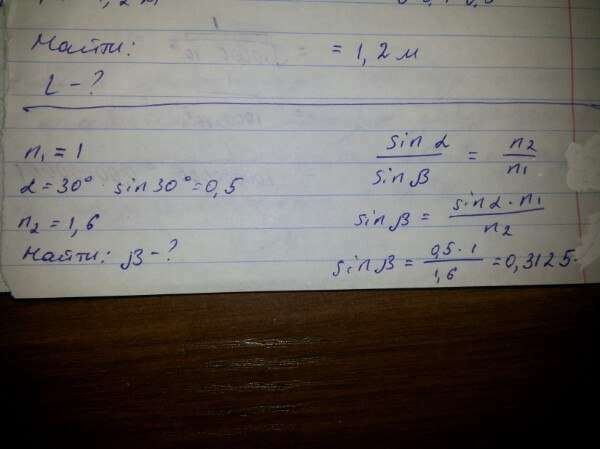 Найти:
= 1,2 м
L - ?
n₁ = 1
α = 30° · sin 30° = 0,5
n₂ = 1,6
Найти: β - ?
sin α / sin β = n₂ / n₁
sin β = sin α · n₁ / n₂
sin β = 0,5 · 1 / 1,6 = 0,3125.